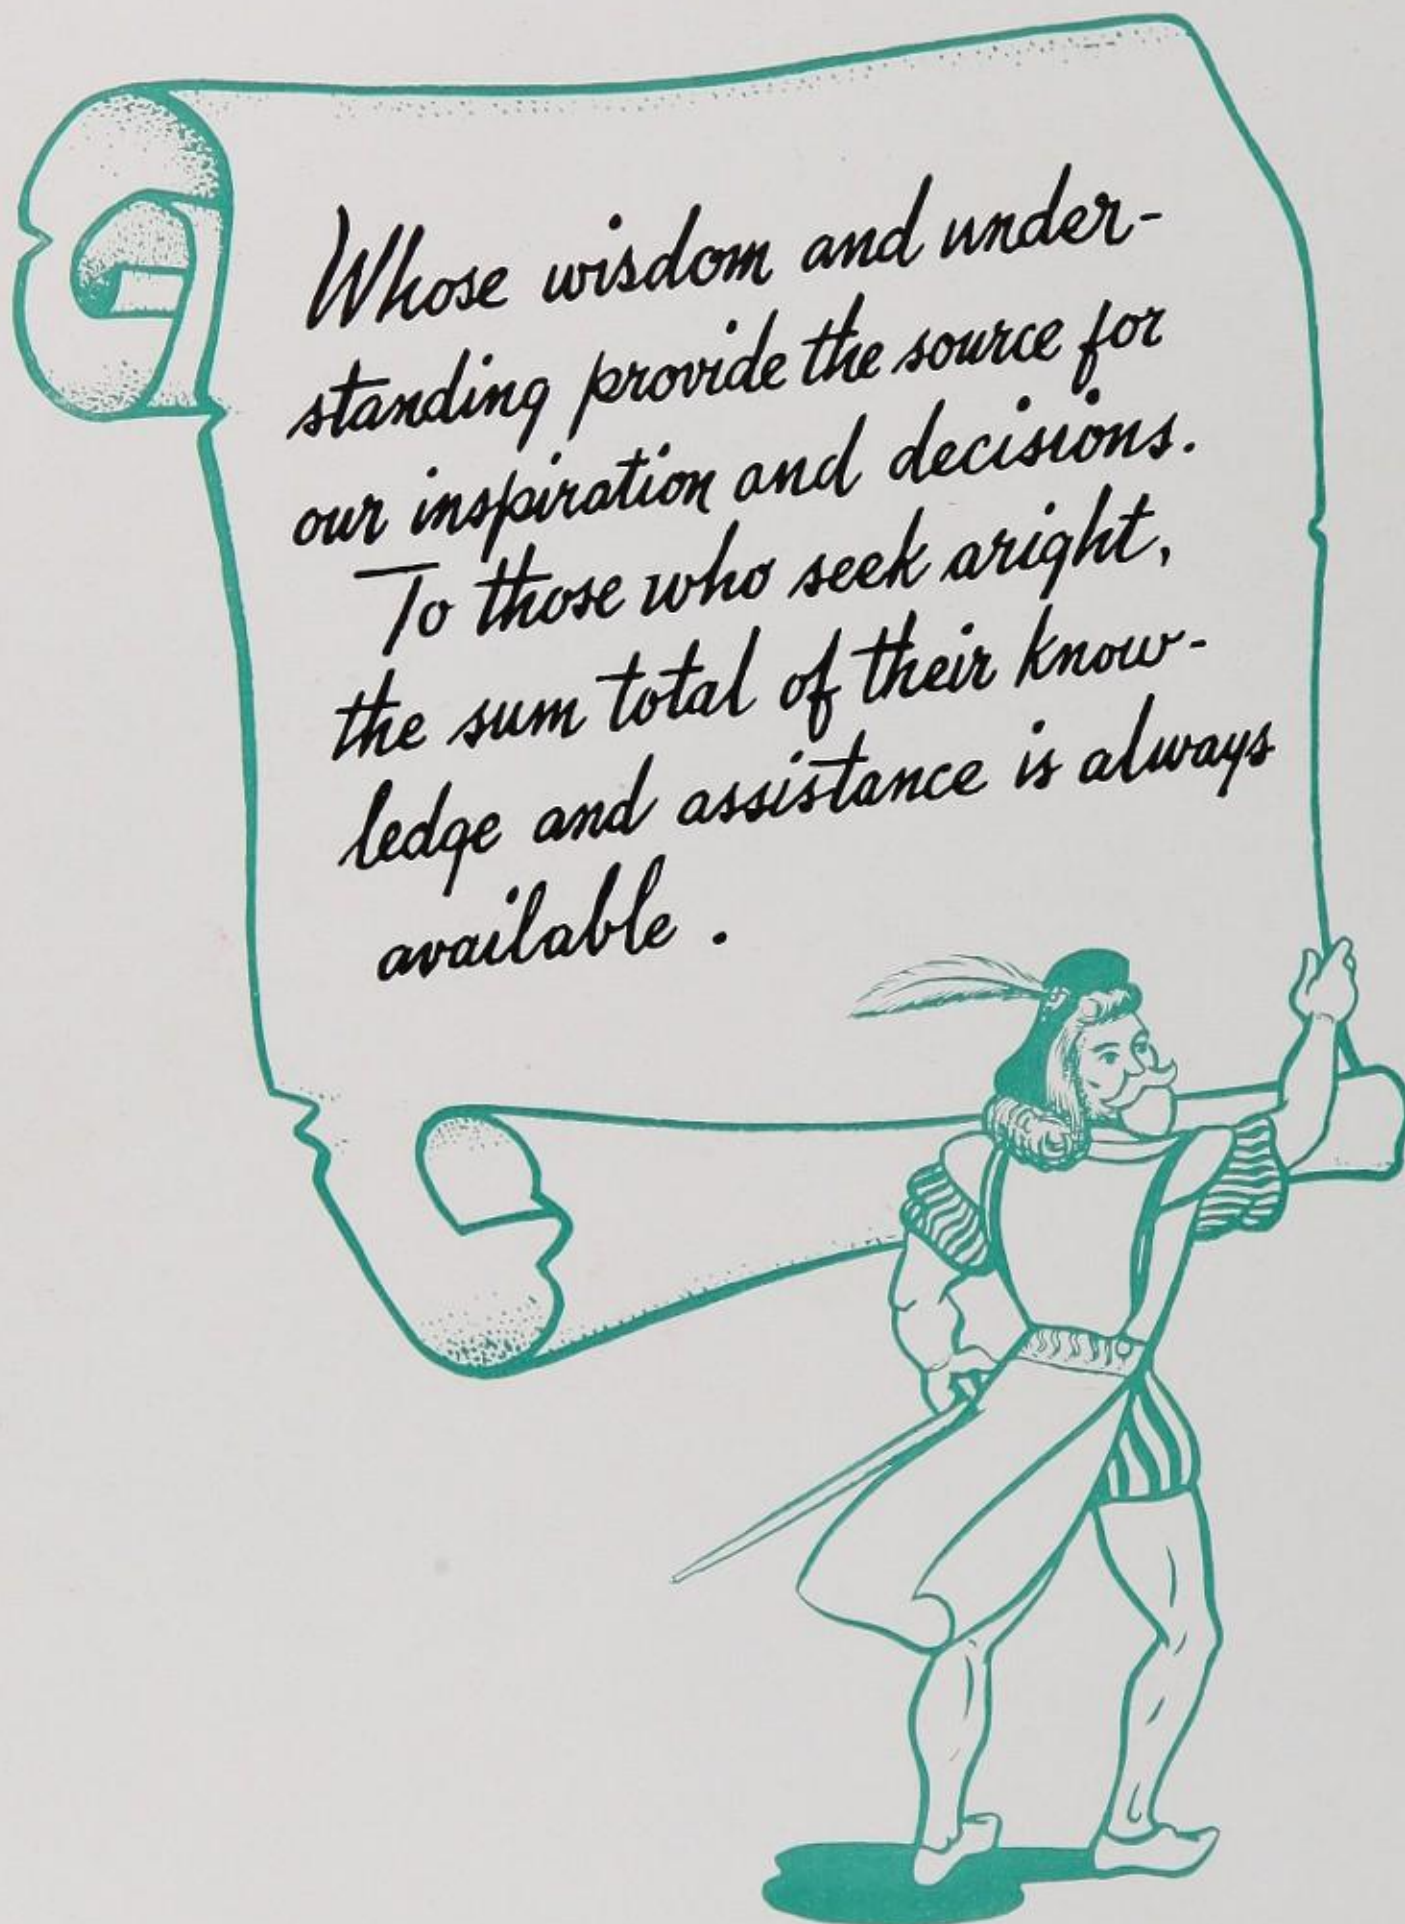 Whose wisdom and under-
standing provide the source for
our inspiration and decisions.
To those who seek aright,
the sum total of their know-
ledge and assistance is always
available .